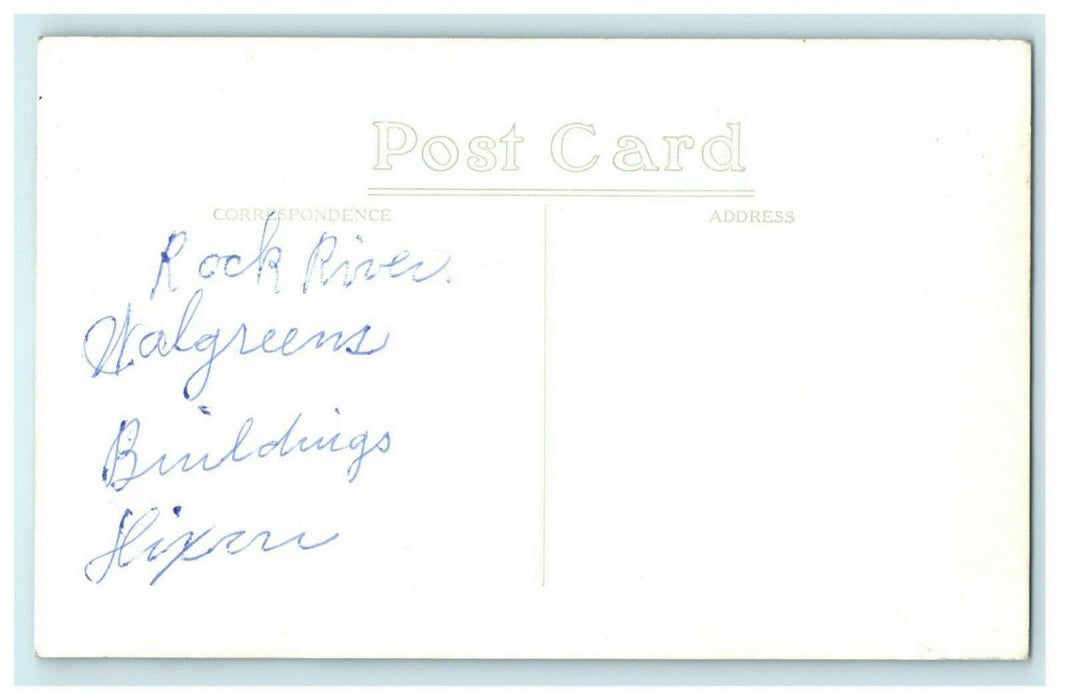 Post Card
CORRESPONDENCE
ADDRESS
Rock River.
Walgreens
Buildings